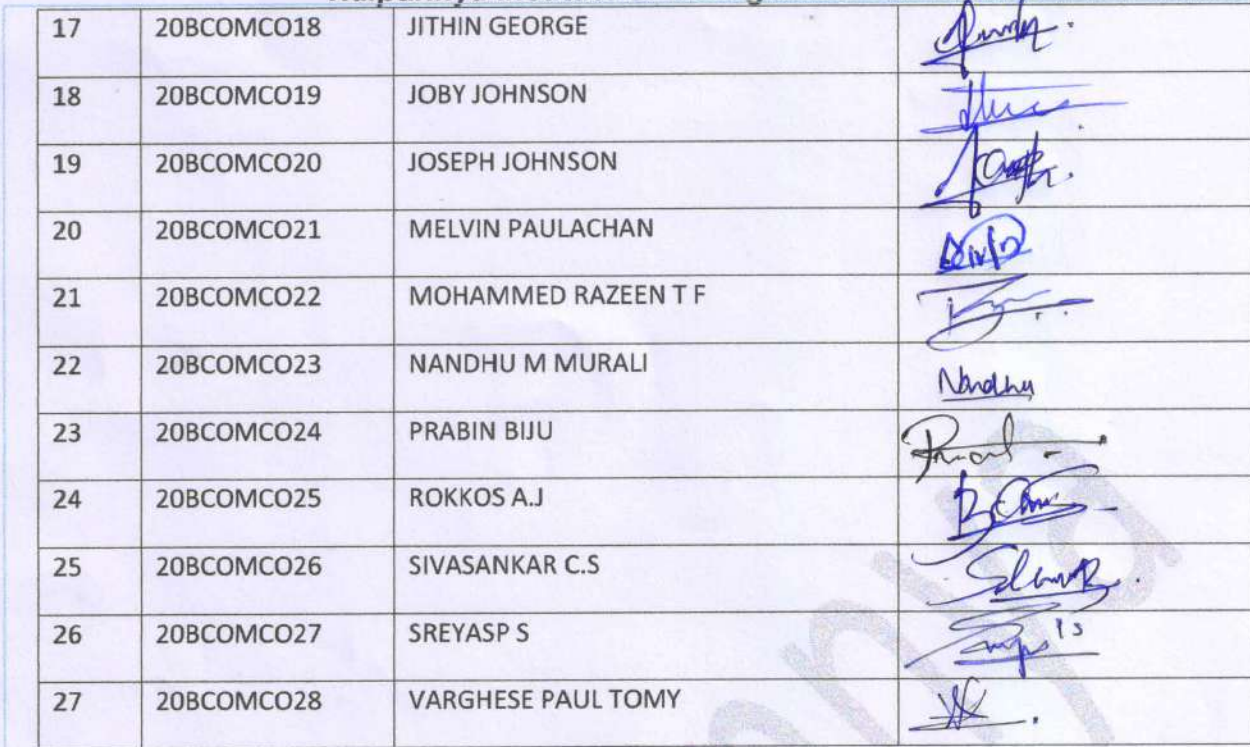 17 20BCOMCO18 JITHIN GEORGE
18 20BCOMCO19 JOBY JOHNSON
19 20BCOMCO20 JOSEPH JOHNSON
20 20BCOMCO21 MELVIN PAULACHAN
21 20BCOMCO22 MOHAMMED RAZEEN T F
22 20BCOMCO23 NANDHU M MURALI Nandhu
23 20BCOMCO24 PRABIN BIJU
24 20BCOMCO25 ROKKOS A.J
25 20BCOMCO26 SIVASANKAR C.S
26 20BCOMCO27 SREYASP S
27 20BCOMCO28 VARGHESE PAUL TOMY